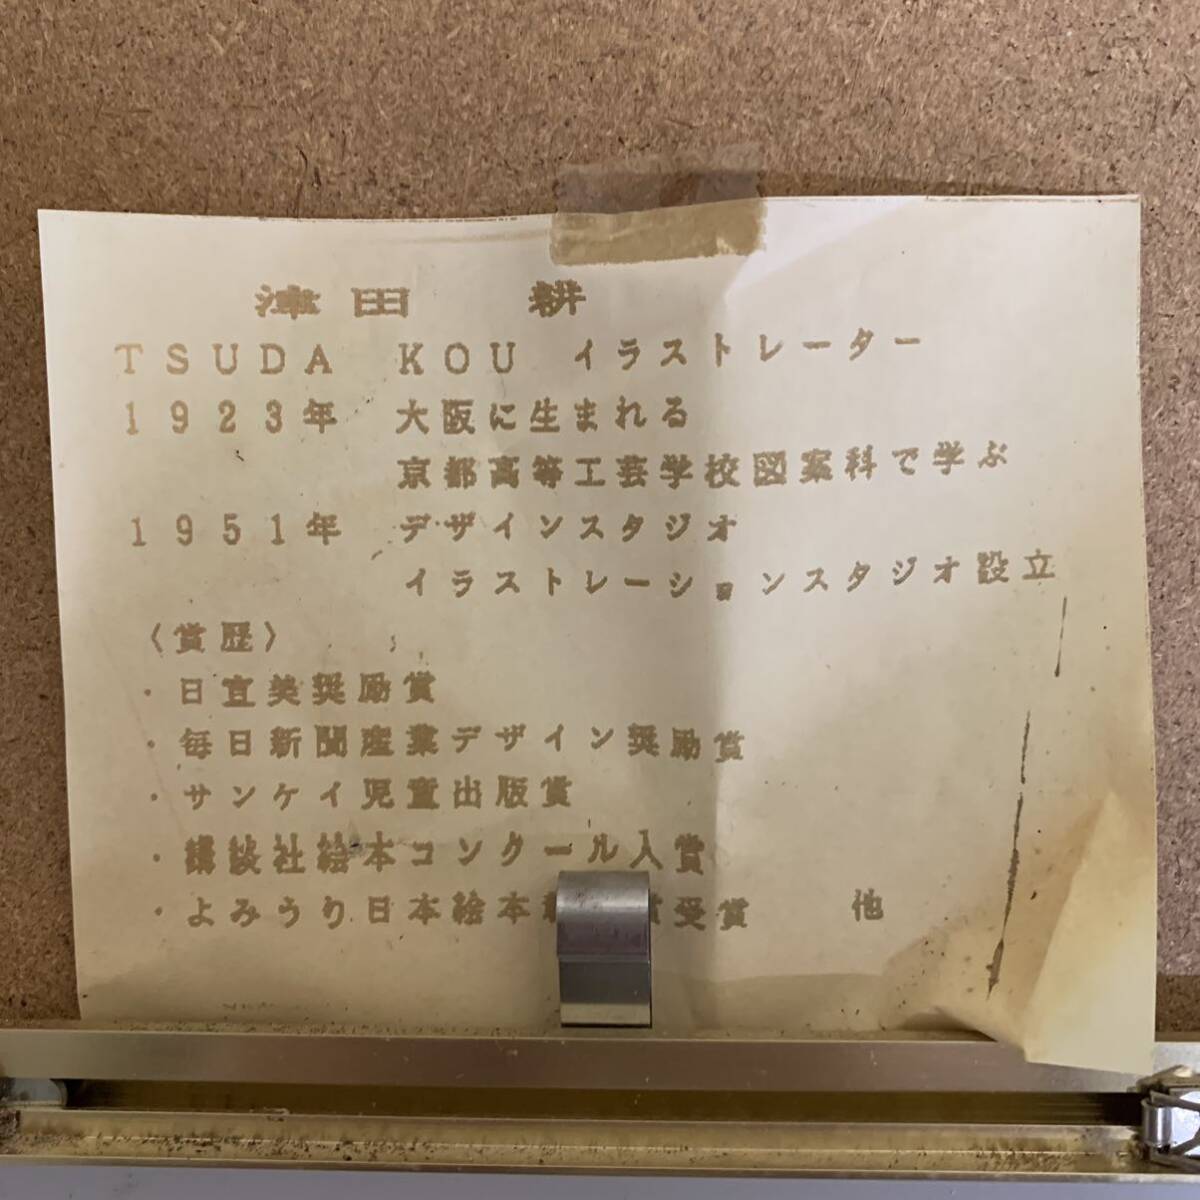 津田　耕
TSUDA　KOU　イラストレーター
1923年　大阪に生まれる
京都高等工芸学校図案科で学ぶ
1951年　デザインスタジオ
イラストレーションスタジオ設立
〈賞歴〉
・日宣美奨励賞
・毎日新聞産業デザイン奨励賞
・サンケイ児童出版賞
・講談社絵本コンクール入賞
・よみうり日本絵本 受賞　他